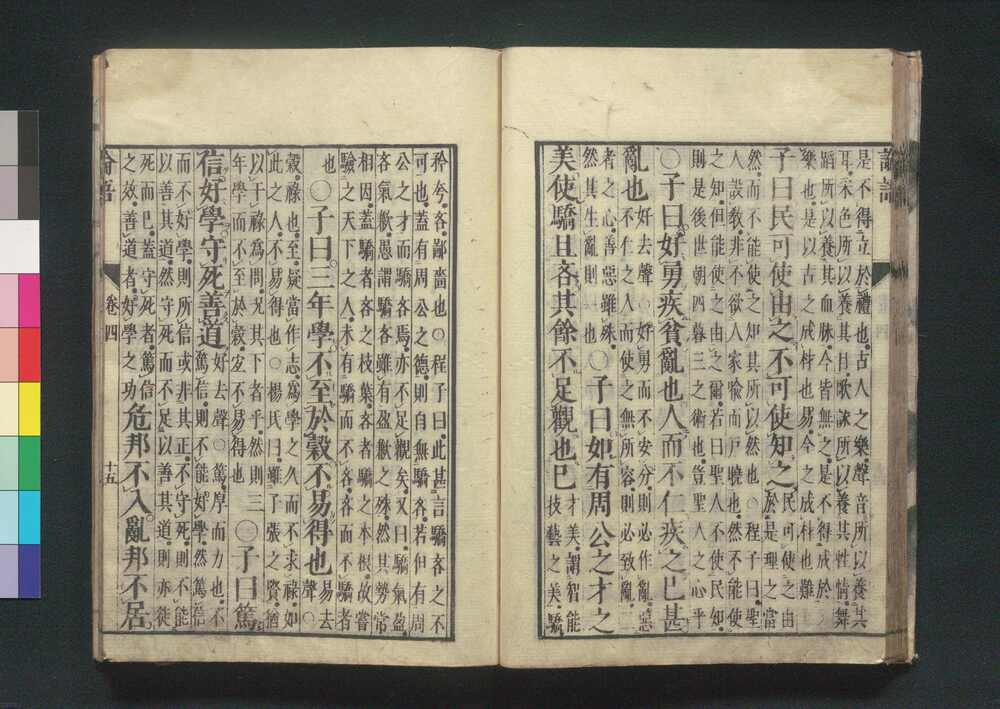 論語
是不得立於禮也古人之樂聲音所以養其
耳采色所以養其目歌詠所以養其性情舞
蹈所以養其血脉今皆無之是不得成於
樂也是以古之成材也易今之成材也難
子曰民可使由之不可使知之
民可使之由
於是理之當
然而不能使之知其所以然也○程子曰聖
人設教非不欲人家喻而戶曉也然不能使
之知但能使之由之爾若曰聖人不使民知
則是後世朝四暮三之術也豈聖人之心乎
○子曰好勇疾貧亂也人而不仁疾之已甚
亂也
好去聲○好勇而不安分則必作亂惡
不仁之人而使之無所容則必致亂二
者之心善惡雖殊
然其生亂則一也
○子曰如有周公之才之
美使驕且吝其餘不足觀也已
才美謂智能
技藝之美驕
矜夸吝鄙嗇也○程子曰此甚言驕吝之不
可也蓋有周公之德則自無驕吝若但有周
公之才而驕吝焉亦不足觀矣又曰驕氣盈
吝氣歉愚謂驕吝雖有盈歉之殊然其勢常
相因蓋驕者吝之枝葉吝者驕之本根故嘗
驗之天下之人未有驕而不吝吝而不驕者
也
○子曰三年學不至於穀不易得也
易去
聲○
穀祿也至疑當作志爲學之久而不求祿如
此之人不易得也○楊氏曰雖子張之賢猶
以干祿爲問况其下者乎然則三
年學而不至於穀宜不易得也
○子曰篤
信好學守死善道
好去聲○篤厚而力也不
篤信則不能好學然篤信
而不好學則所信或非其正不守死則不能
以善其道然守死而不足以善其道則亦徒
死而已蓋守死者篤信
之效善道者好學之功
危邦不入亂邦不居
論語
卷四
十五